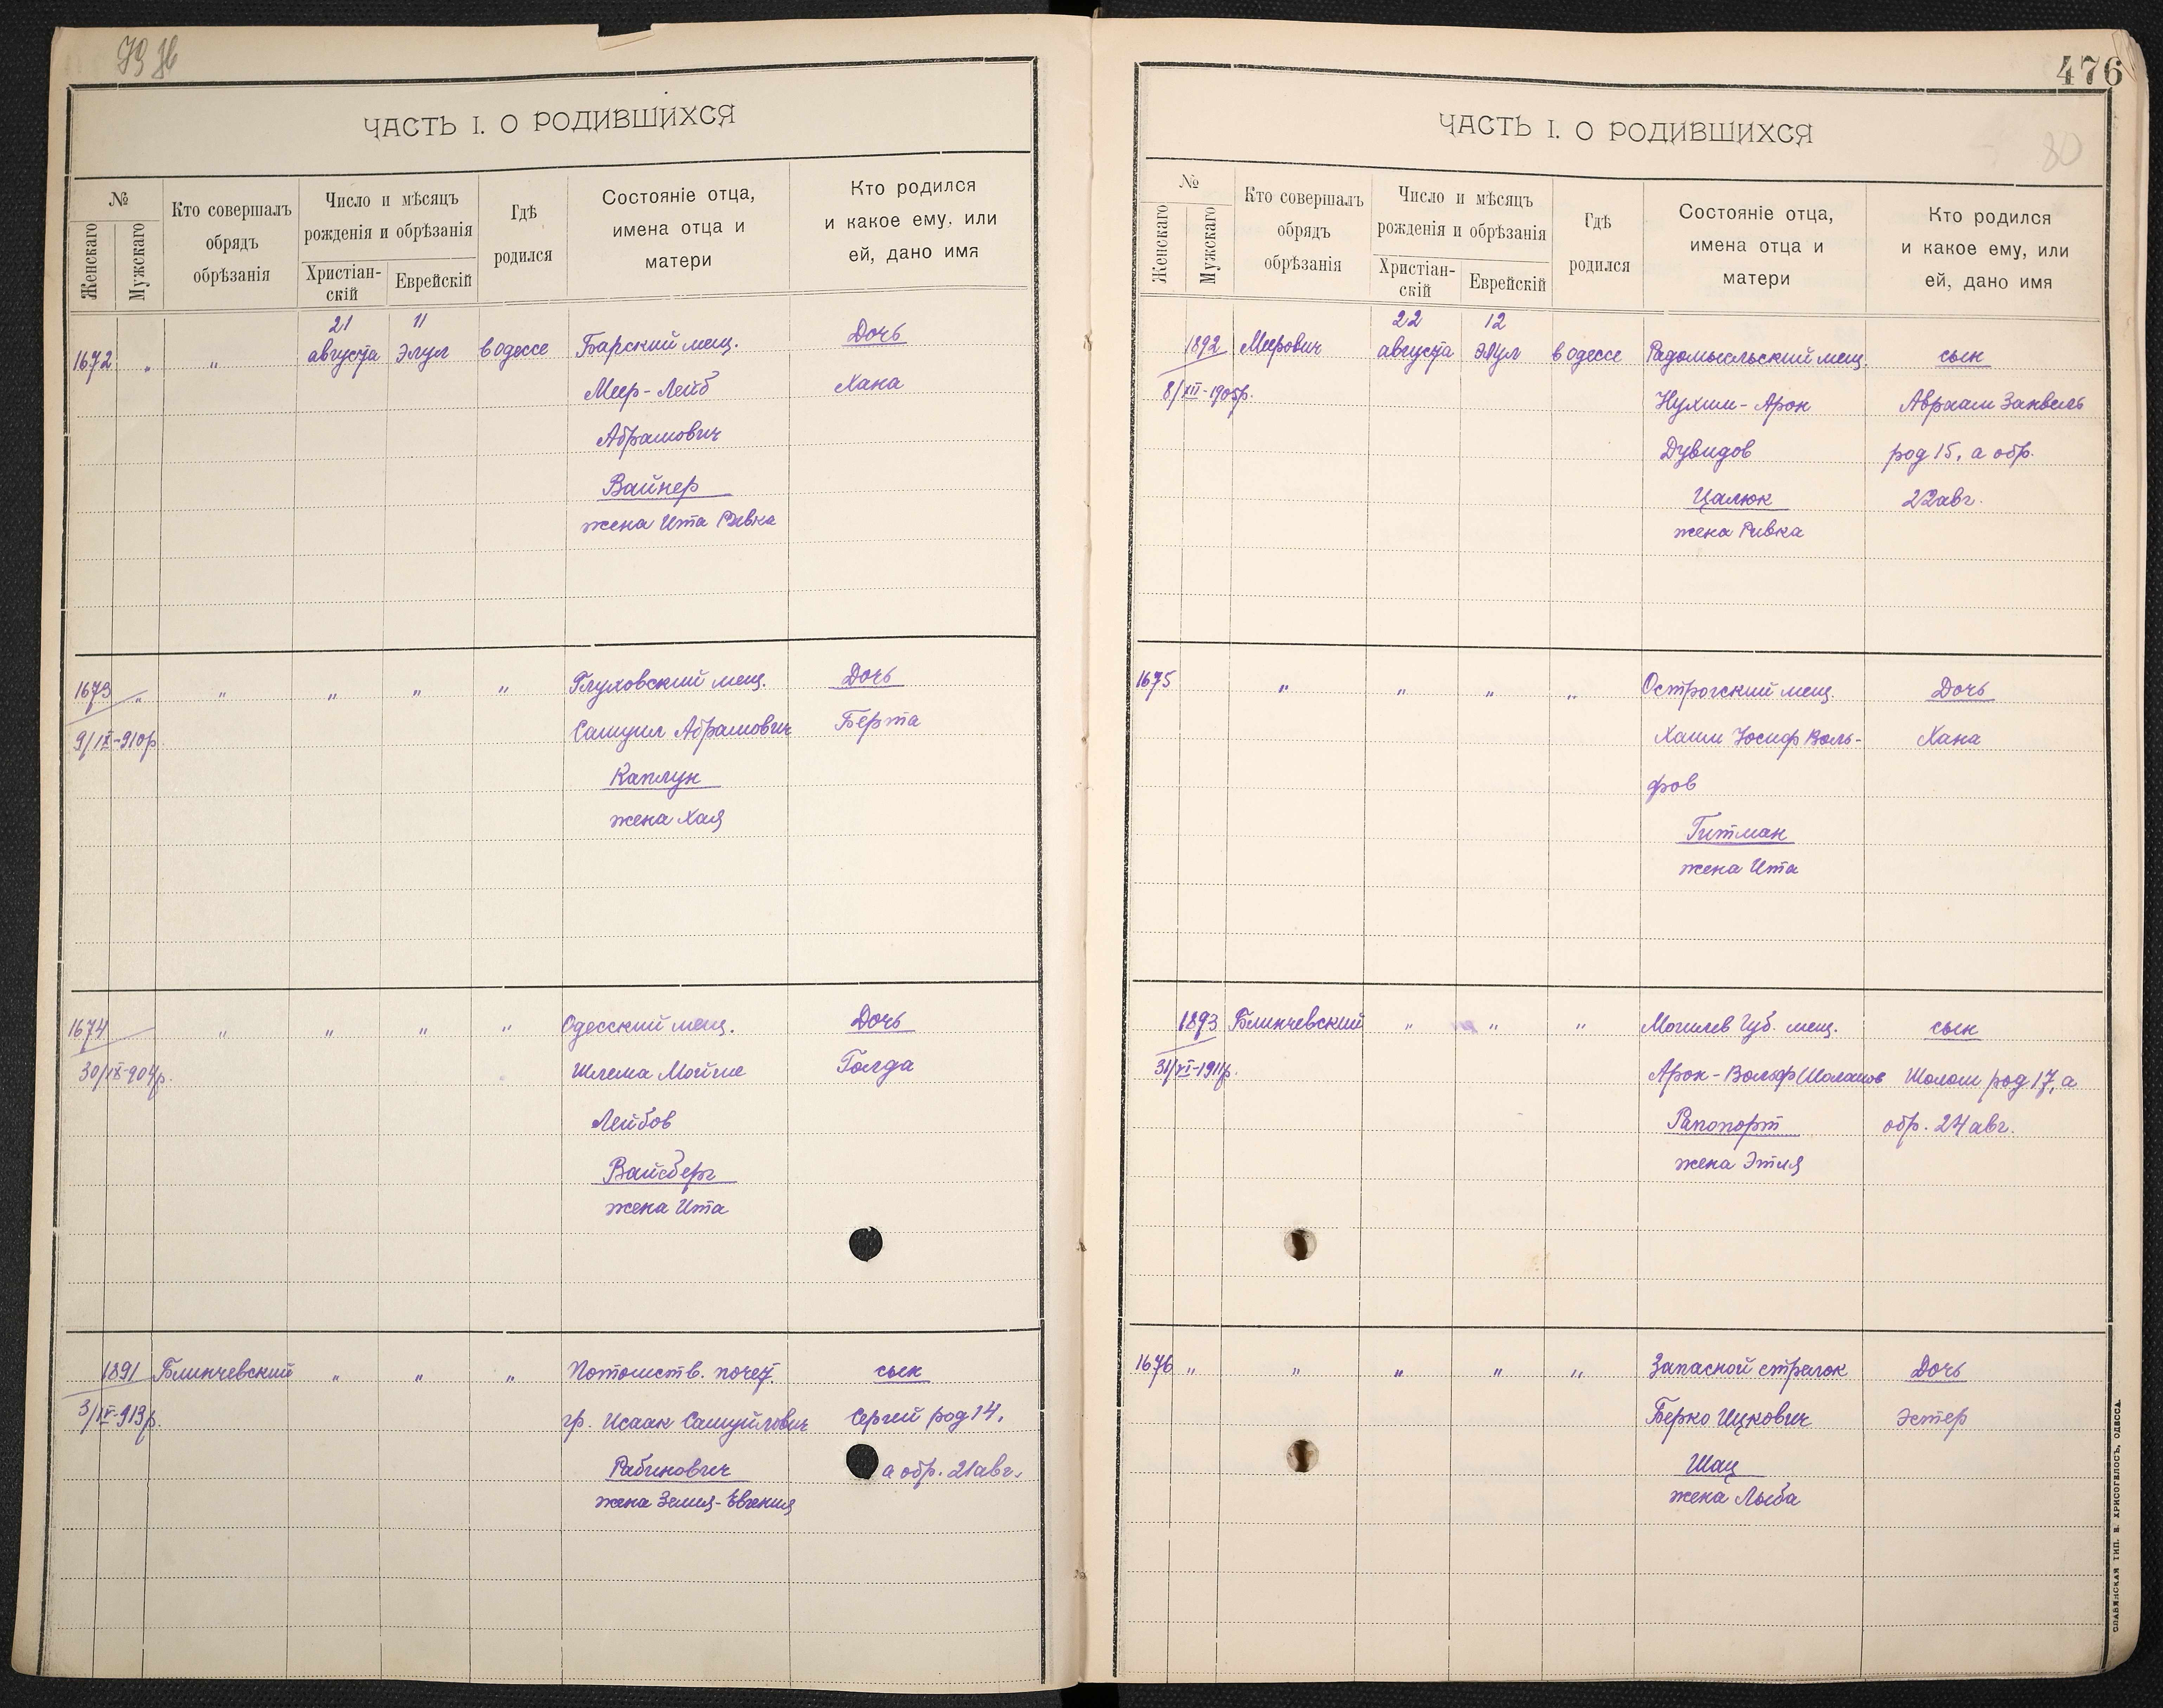 ЧАСТЬ I. О РОДИВШИХСЯ
№
Женскаго
Мужскаго
Кто совершалъ
обрядъ
обрѣзанія
Число и мѣсяцъ
рожденія и обрѣзанія
Христіан-
скій
Еврейскій
Гдѣ
родился
Состояніе отца,
имена отца и
матери
Кто родился
и какое ему, или
ей, дано имя
21 11
1672 „ „ августа Элул в Одессе Барский мещ. Дочь
Меер-Лейб Хана
Абрамович
Вайнер
жена Ита Ривка
1673 „ „ „ „ „ Глуховский мещ. Дочь
9/IX-910р. Самуил Абрамович Берта
Каплун
жена Хая
1674 „ „ „ „ Одесский мещ. Дочь
30/IX-904р. Шлема Мойше Голда
Лейбов
Вайсберг
жена Ита
1891 Блинчевский „ „ „ Потомств. почет. сын
3/IV-913р. гр. Исаак Самуйлович Сергей род 14,
Рабинович а обр. 21 авг.
жена Земля-Евгения
476
80
ЧАСТЬ I. О РОДИВШИХСЯ
№
Женскаго
Мужскаго
Кто совершалъ
обрядъ
обрѣзанія
Число и мѣсяцъ
рожденія и обрѣзанія
Христіан-
скій
Еврейскій
Гдѣ
родился
Состояніе отца,
имена отца и
матери
Кто родился
и какое ему, или
ей, дано имя
22 12
1892 Меерович августа Элул в Одессе Радомысльский мещ. сын
8/XII-1905р. Нухим-Арон Авраам Занвель
Дувидов род 15, а обр.
Цалюк 22 авг.
жена Ривка
1675 „ „ „ „ Острогский мещ. Дочь
Хаим Иосиф Воль- Хана
фов
Гитман
жена Ита
1893 Блинчевский „ „ „ Могилев Губ. мещ. сын
31/VI-1911р. Арон-Вольф Шоламов Шолом род 17, а
Рапопорт обр. 24 авг.
жена Этля
1676 „ „ „ „ „ Запасной стрелок Дочь
Берко Ицкович Эстер
Шац
жена Лыба
СЛАВЯНСКАЯ ТИП. Н. ХРИСОГЕЛОСЪ, ОДЕССА.